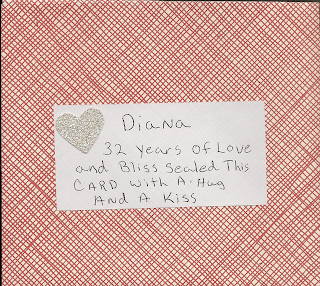 Diana
32 years of Love
and Bliss Sealed This
CARD With A Hug
And A Kiss